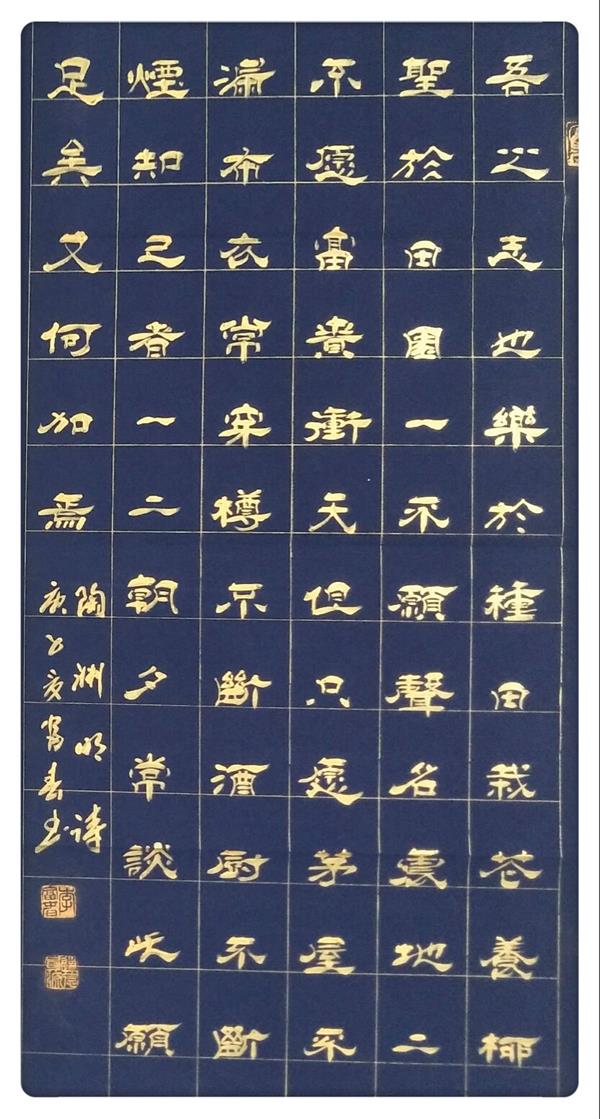 吾之志也樂於種田栽花養柳
聖於田園一不願聲名震地二
不愿富貴衝天但只愿茅屋不
漏布衣常穿樽不斷酒厨不斷
煙知己者一二朝夕常談此願
足矣又何加焉
陶渊明诗
庚子夏富春书